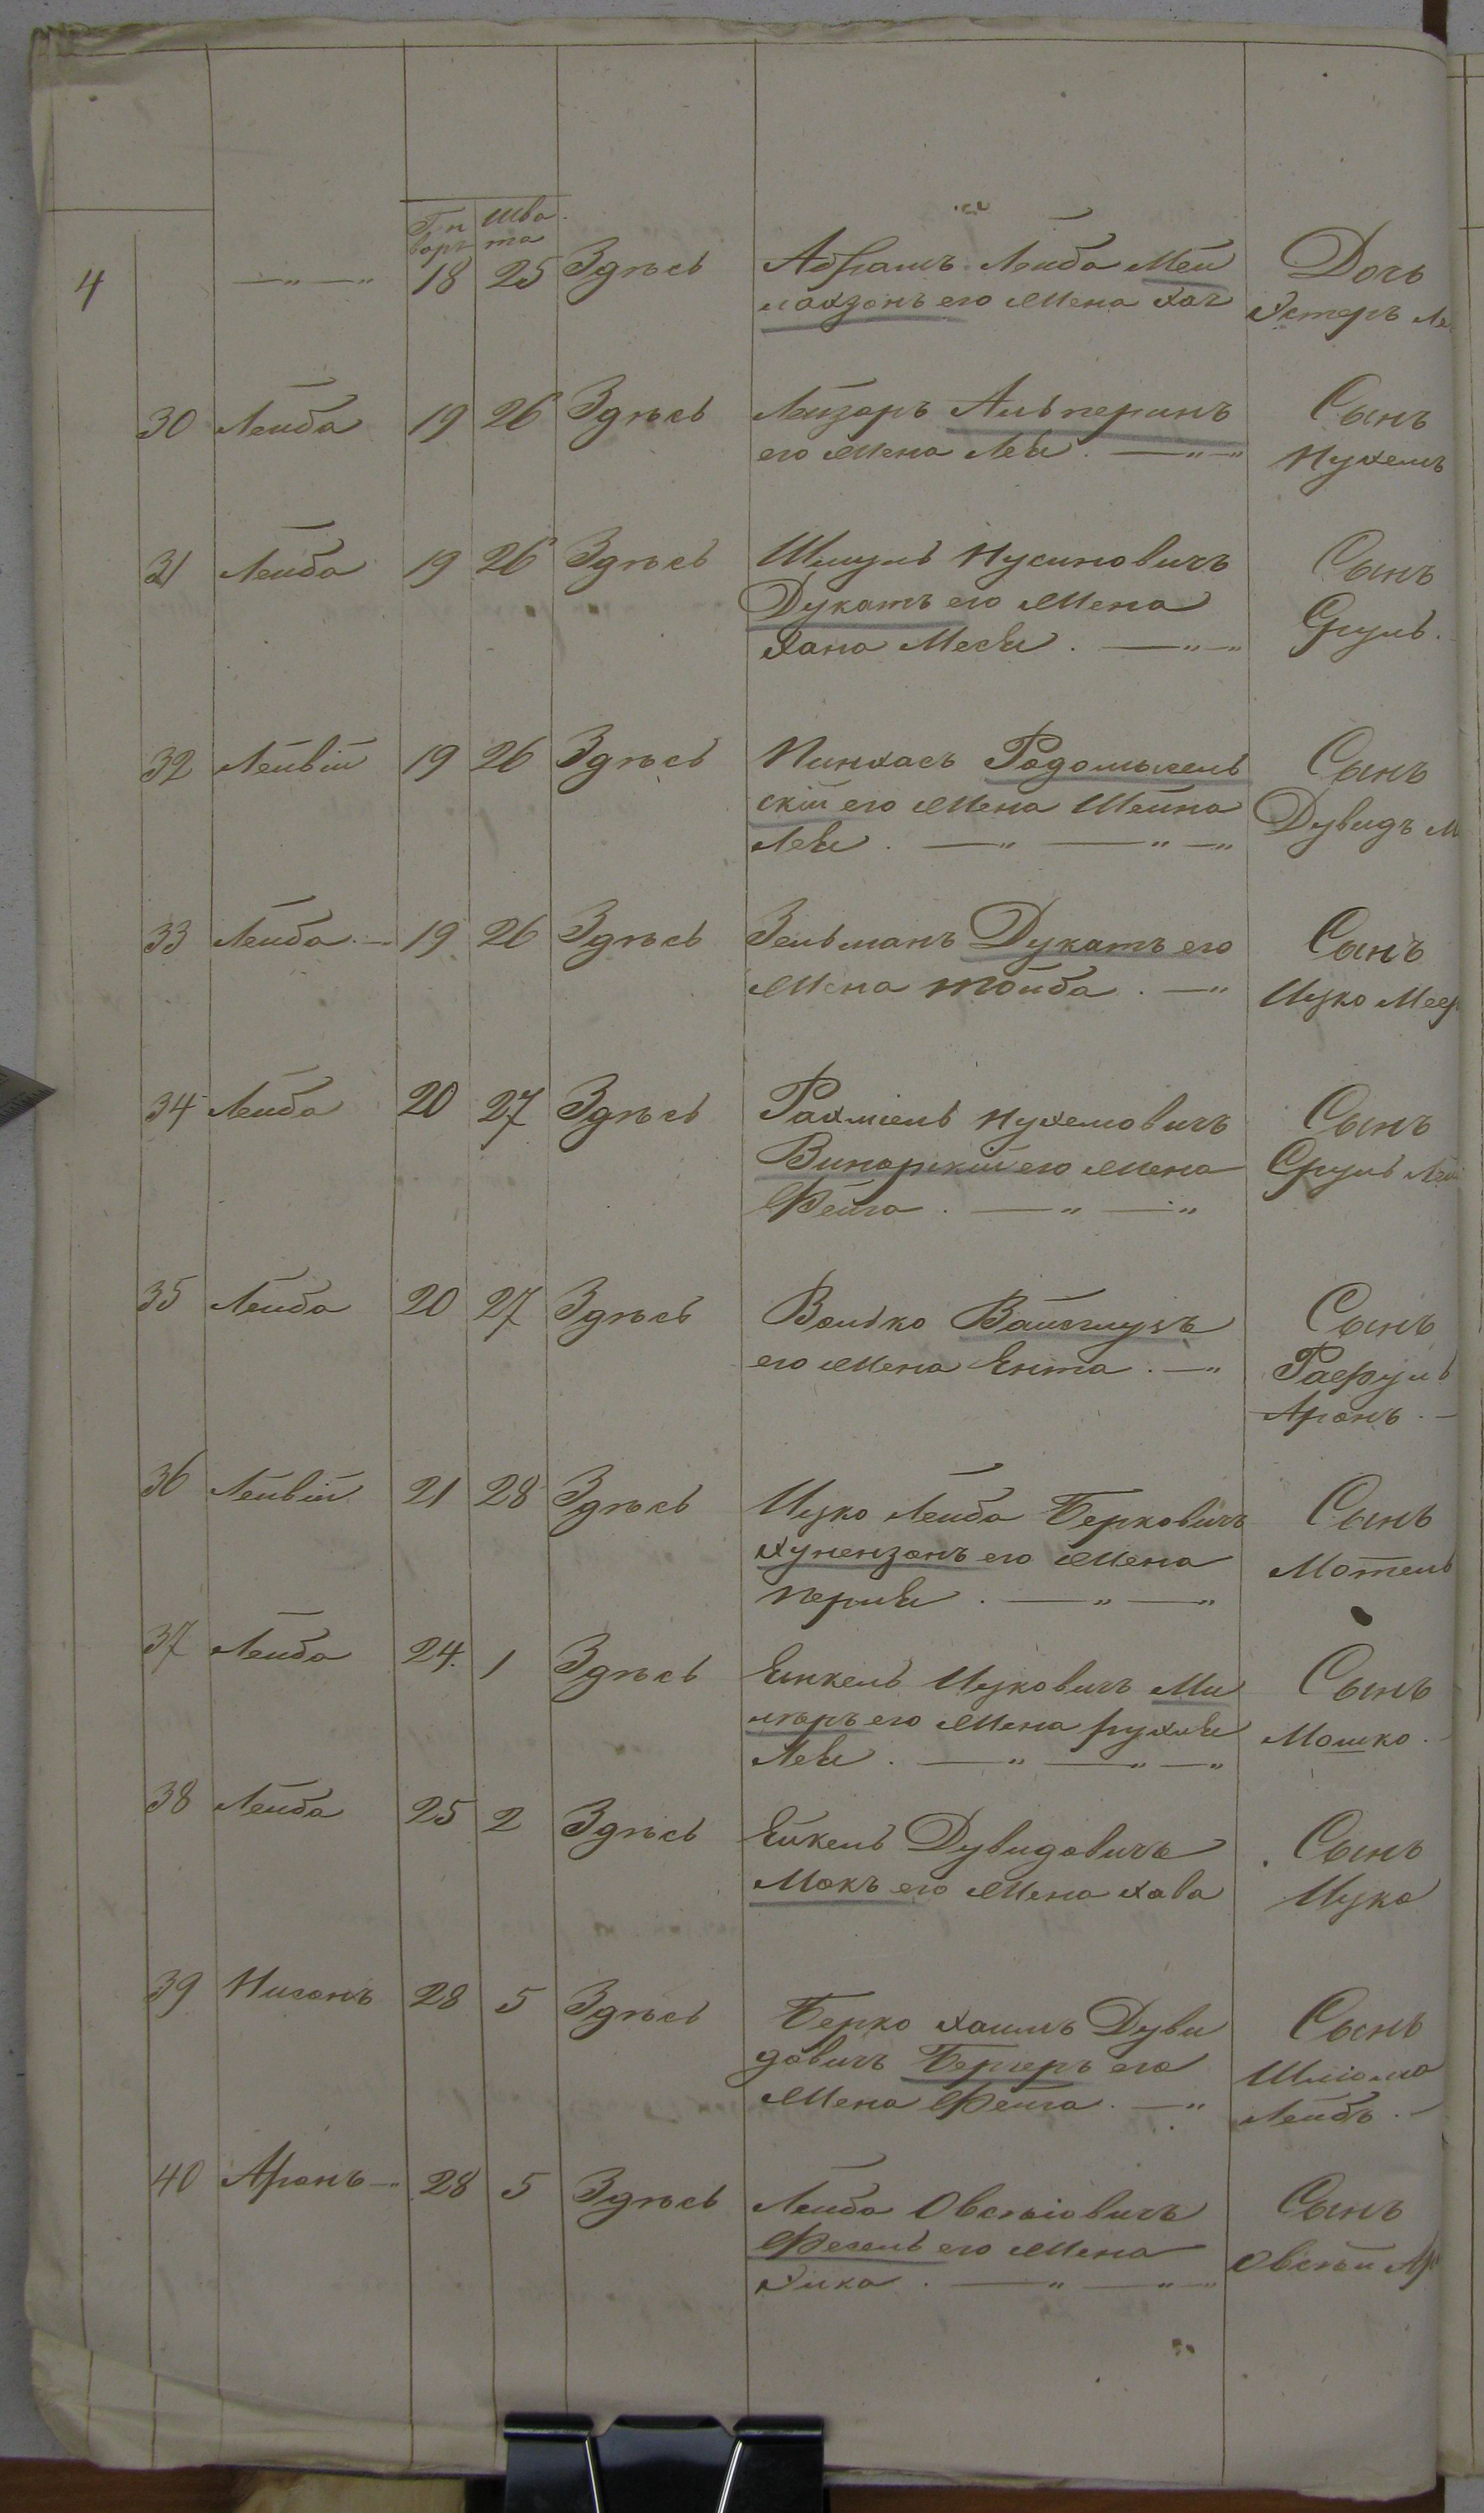 Ген Шва
варь та
4 —„—„ 18 25 Здѣсь Абрамъ Лейба Мей Дочь
лахзонъ его Жена Хая Эстеръ
30 Лейба 19 26 Здѣсь Лейзеръ Альперинъ Сынъ
его Жена Лея . —„—„ Нухемъ
31 Лейба 19 26 Здѣсь Шмуль Нусиновичъ Сынъ
Дукатъ его Жена Сруль.
Хана Лея . —„—„
32 Лейвій 19 26 Здѣсь Пинхасъ Радомысель Сынъ
скій его Жена Шейна Дувидъ
Лея . —„ —„ —„
33 Лейба.— 19 26 Здѣсь Зельманъ Дукатъ его Сынъ
Жена Тойба . —„ Ицко Меер
34 Лейба 20 27 Здѣсь Рахміель Нухемовичъ Сынъ
Винарскій его Жена Сруль Лей
Фейга . —„ —„
35 Лейба 20 27 Здѣсь Волько его Сынъ
его Жена Ента . —„ Рафуль
Аронъ . —
36 Лейвій 21 28 Здѣсь Ицко Лейба Берковичъ Сынъ
Хунензонъ его Жена Мотель
Перля . —„ —„
37 Лейба 24. 1 Здѣсь Енкель Ицковичъ Ми Сынъ
лѣръ его Жена Рухля Мошко .
Лея . —„ —„ —„
38 Лейба 25 2 Здѣсь Енкель Дувидовичъ Сынъ
Мокъ его Жена Хава Ицко
39 Нисонъ 28 5 Здѣсь Берко Хаимъ Дуви Сынъ
довичъ Бергеръ его Шліома
Жена Фейга . —„ Лейбъ . —
40 Аронъ —„ 28 5 Здѣсь Лейба Овсѣіовичъ Сынъ
его Жена Овсѣй Ар
Хика . —„ —„ —„